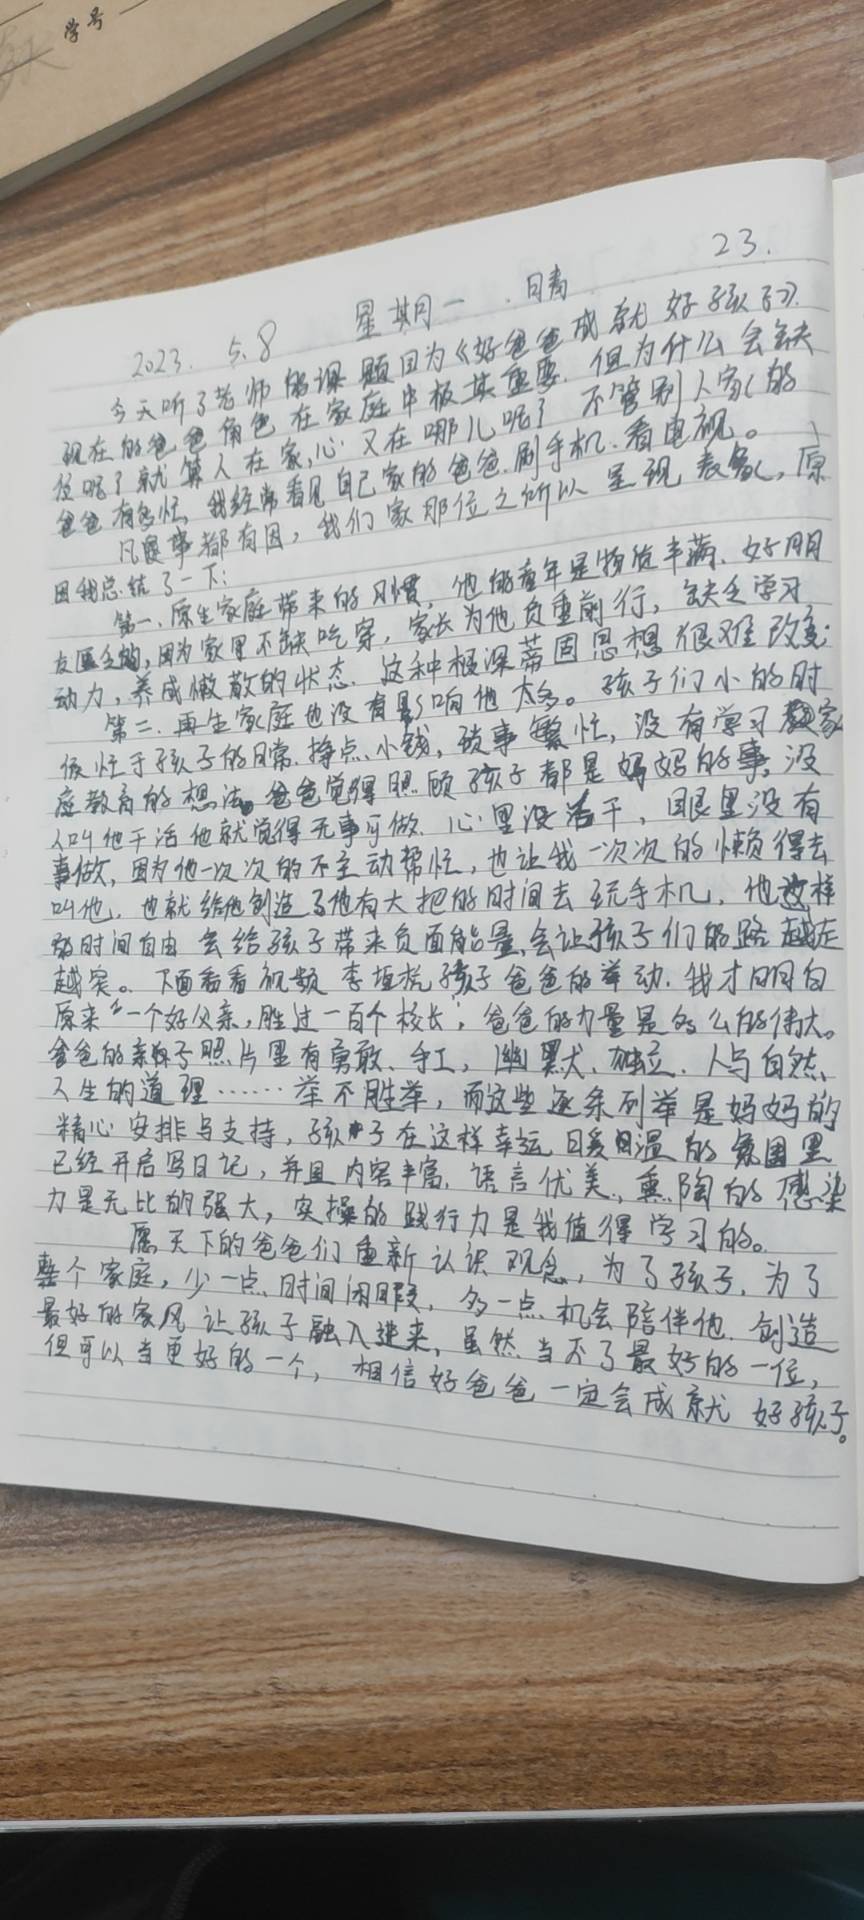 学号
23.
2023. 5.8 星期一 . 晴
今天听了老师的课题目为《好爸爸成就好孩子》.
现在的爸爸角色在家庭中极其重要. 但为什么会缺
位呢? 就算人在家,心又在哪儿呢? 不管别人家的
爸爸有多忙, 我经常看见自己家的爸爸.刷手机.看电视。
凡事都有因, 我们家那位之所以呈现表象, 原
因我总结了一下:
第一、原生家庭带来的习惯, 他的童年是物质丰满、好朋
友匮乏的, 因为家里不缺吃穿, 家长为他负重前行, 缺乏学习
动力, 养成懒散的状态. 这种根深蒂固思想很难改变;
第二. 再生家庭也没有影响他太多。孩子们小的时
候忙于孩子的日常.挣点小钱, 琐事繁忙, 没有学习家
庭教育的想法。爸爸觉得照顾孩子都是妈妈的事, 没
人叫他干活他就觉得无事可做. 心里没活干, 眼里没有
事做, 因为他一次次的不主动帮忙, 也让我一次次的懒得去
叫他, 也就给他创造了他有大把的时间去玩手机, 他这样
的时间自由会给孩子带来负面能量,会让孩子们的路越走
越窄。下面看看视频李垣孩子爸爸的举动. 我才明白
原来“一个好父亲, 胜过一百个校长”; 爸爸的力量是多么的伟大。
爸爸的亲子照片里有勇敢、手工, 幽默、独立. 人与自然、
人生的道理……举不胜举, 而这些逐条列举是妈妈的
精心安排与支持, 孩子在这样幸运暖温的氛围里
已经开启写日记, 并且内容丰富. 语言优美, 熏陶的感染
力是无比的强大, 实操的践行力是我值得学习的。
愿天下的爸爸们重新认识观念, 为了孩子, 为了
整个家庭, 少一点时间闲暇, 多一点机会陪伴他. 创造
最好的家风让孩子融入进来, 虽然当不了最好的一位,
但可以当更好的一个, 相信好爸爸一定会成就好孩子。